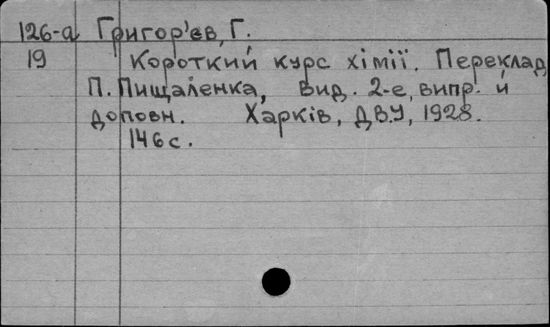 126-а Григор'єв, Г.
19 Короткий курс хімії. Переклад
П. Пищаленка, Вид. 2-е, випр. й
доповн. Харків, ДВУ, 1928.
146 с.